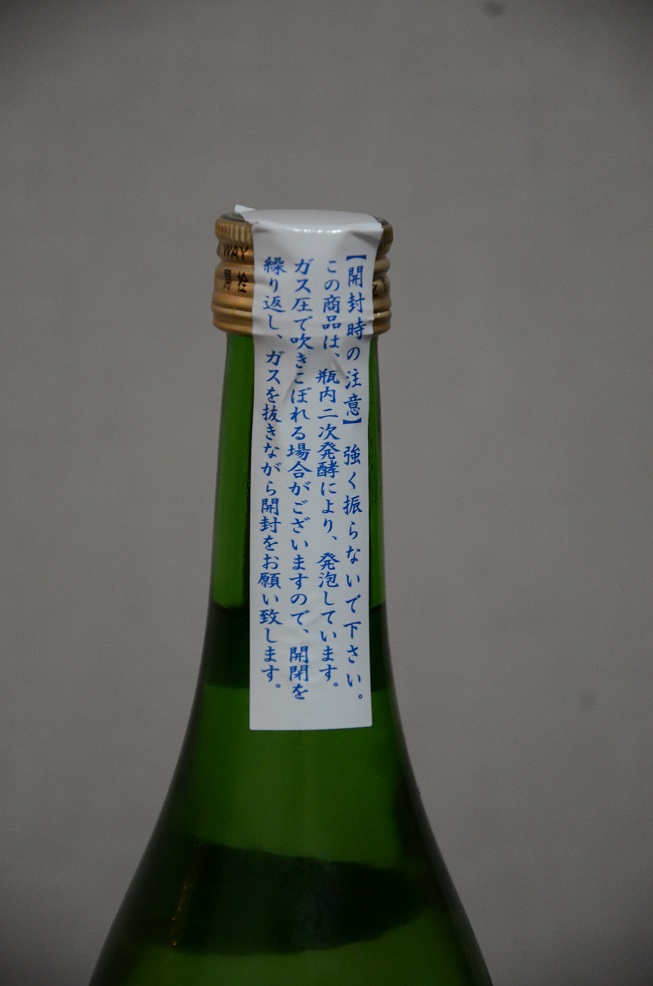 【開封時の注意】 強く振らないで下さい。
この商品は、瓶内二次発酵により、発泡しています。
ガス圧で吹きこぼれる場合がございますので、開閉を
繰り返し、ガスを抜きながら開封をお願い致します。
WAY
開栓